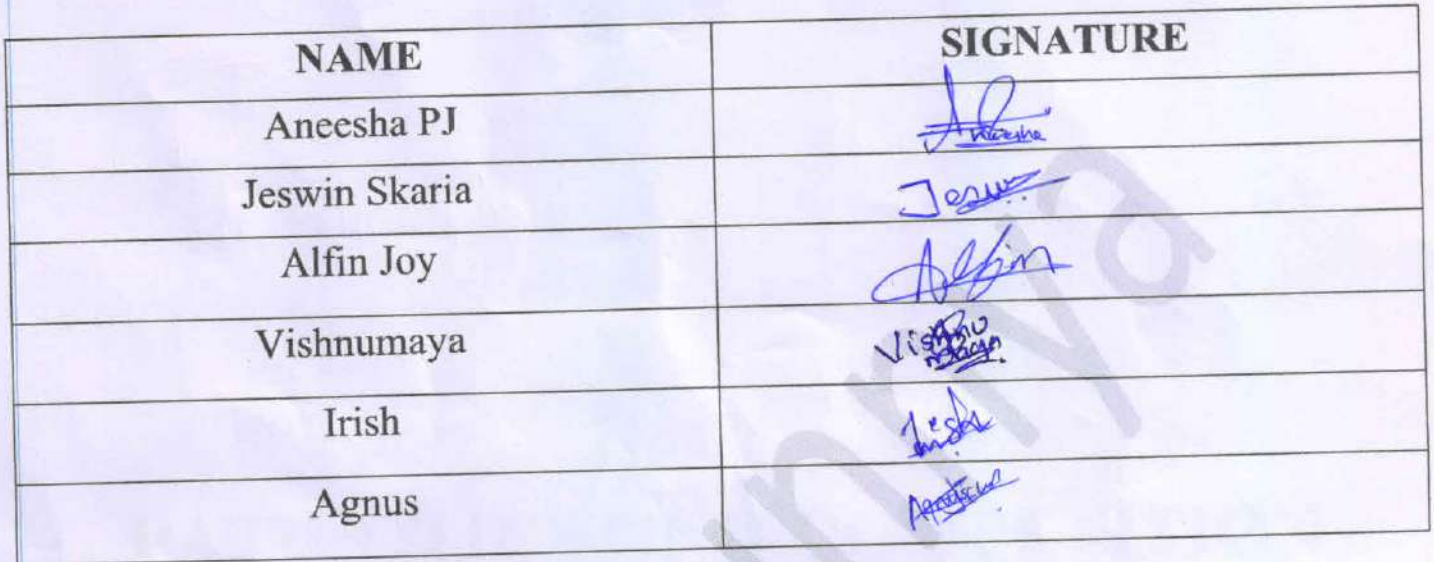 NAME SIGNATURE
Aneesha PJ Aneesha
Jeswin Skaria Jeswin
Alfin Joy Alfin
Vishnumaya Vishnu
maya
Irish Irish
Agnus